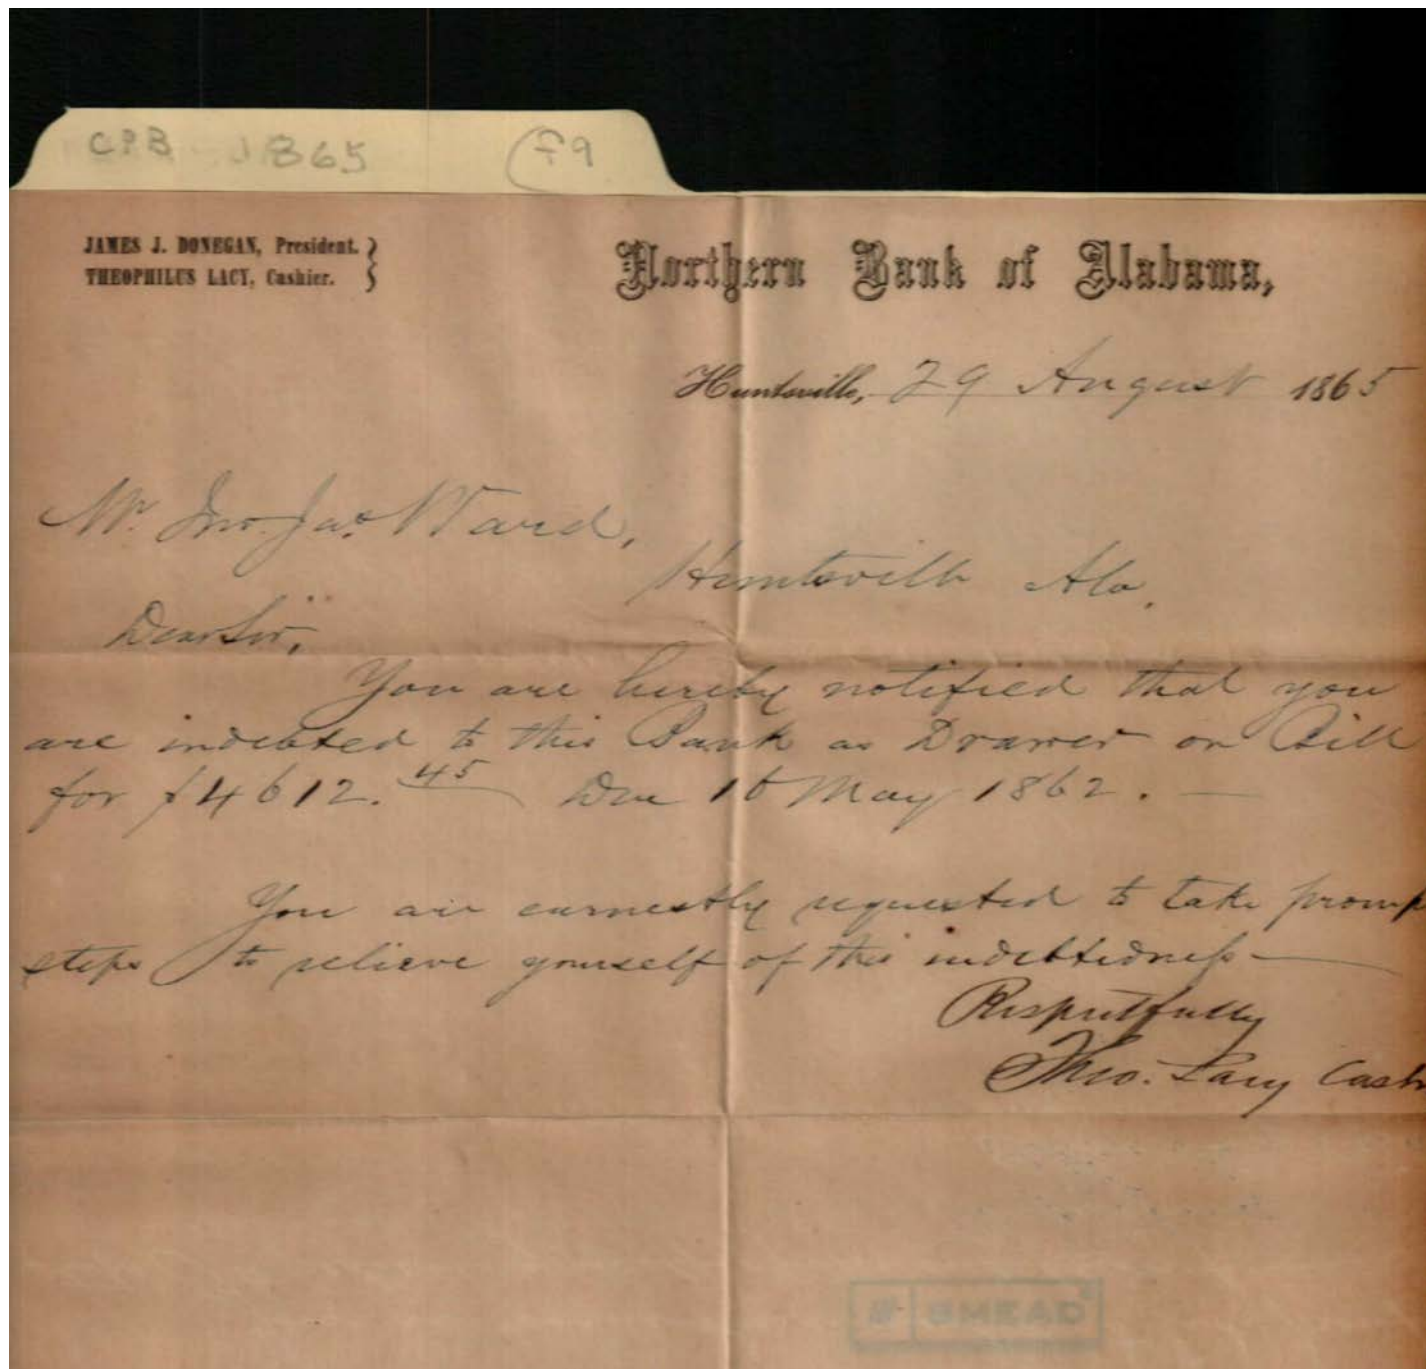 CPB 1865 f9
JAMES J. DONEGAN, President.
THEOPHILUS LACY, Cashier.
Northern Bank of Alabama,
Huntsville, 29 August 1865
Mr. Jno. Jas. Ward,
Huntsville Ala.
Dear Sir,
You are hereby notified that you
are indebted to this Bank as Drawer on Bill
for $4612.45 Due May 1862. —
You are earnestly requested to take promp
steps to relieve yourself of this indebtedness —
Respectfully
Theo. Lacy Cash
SMEAD